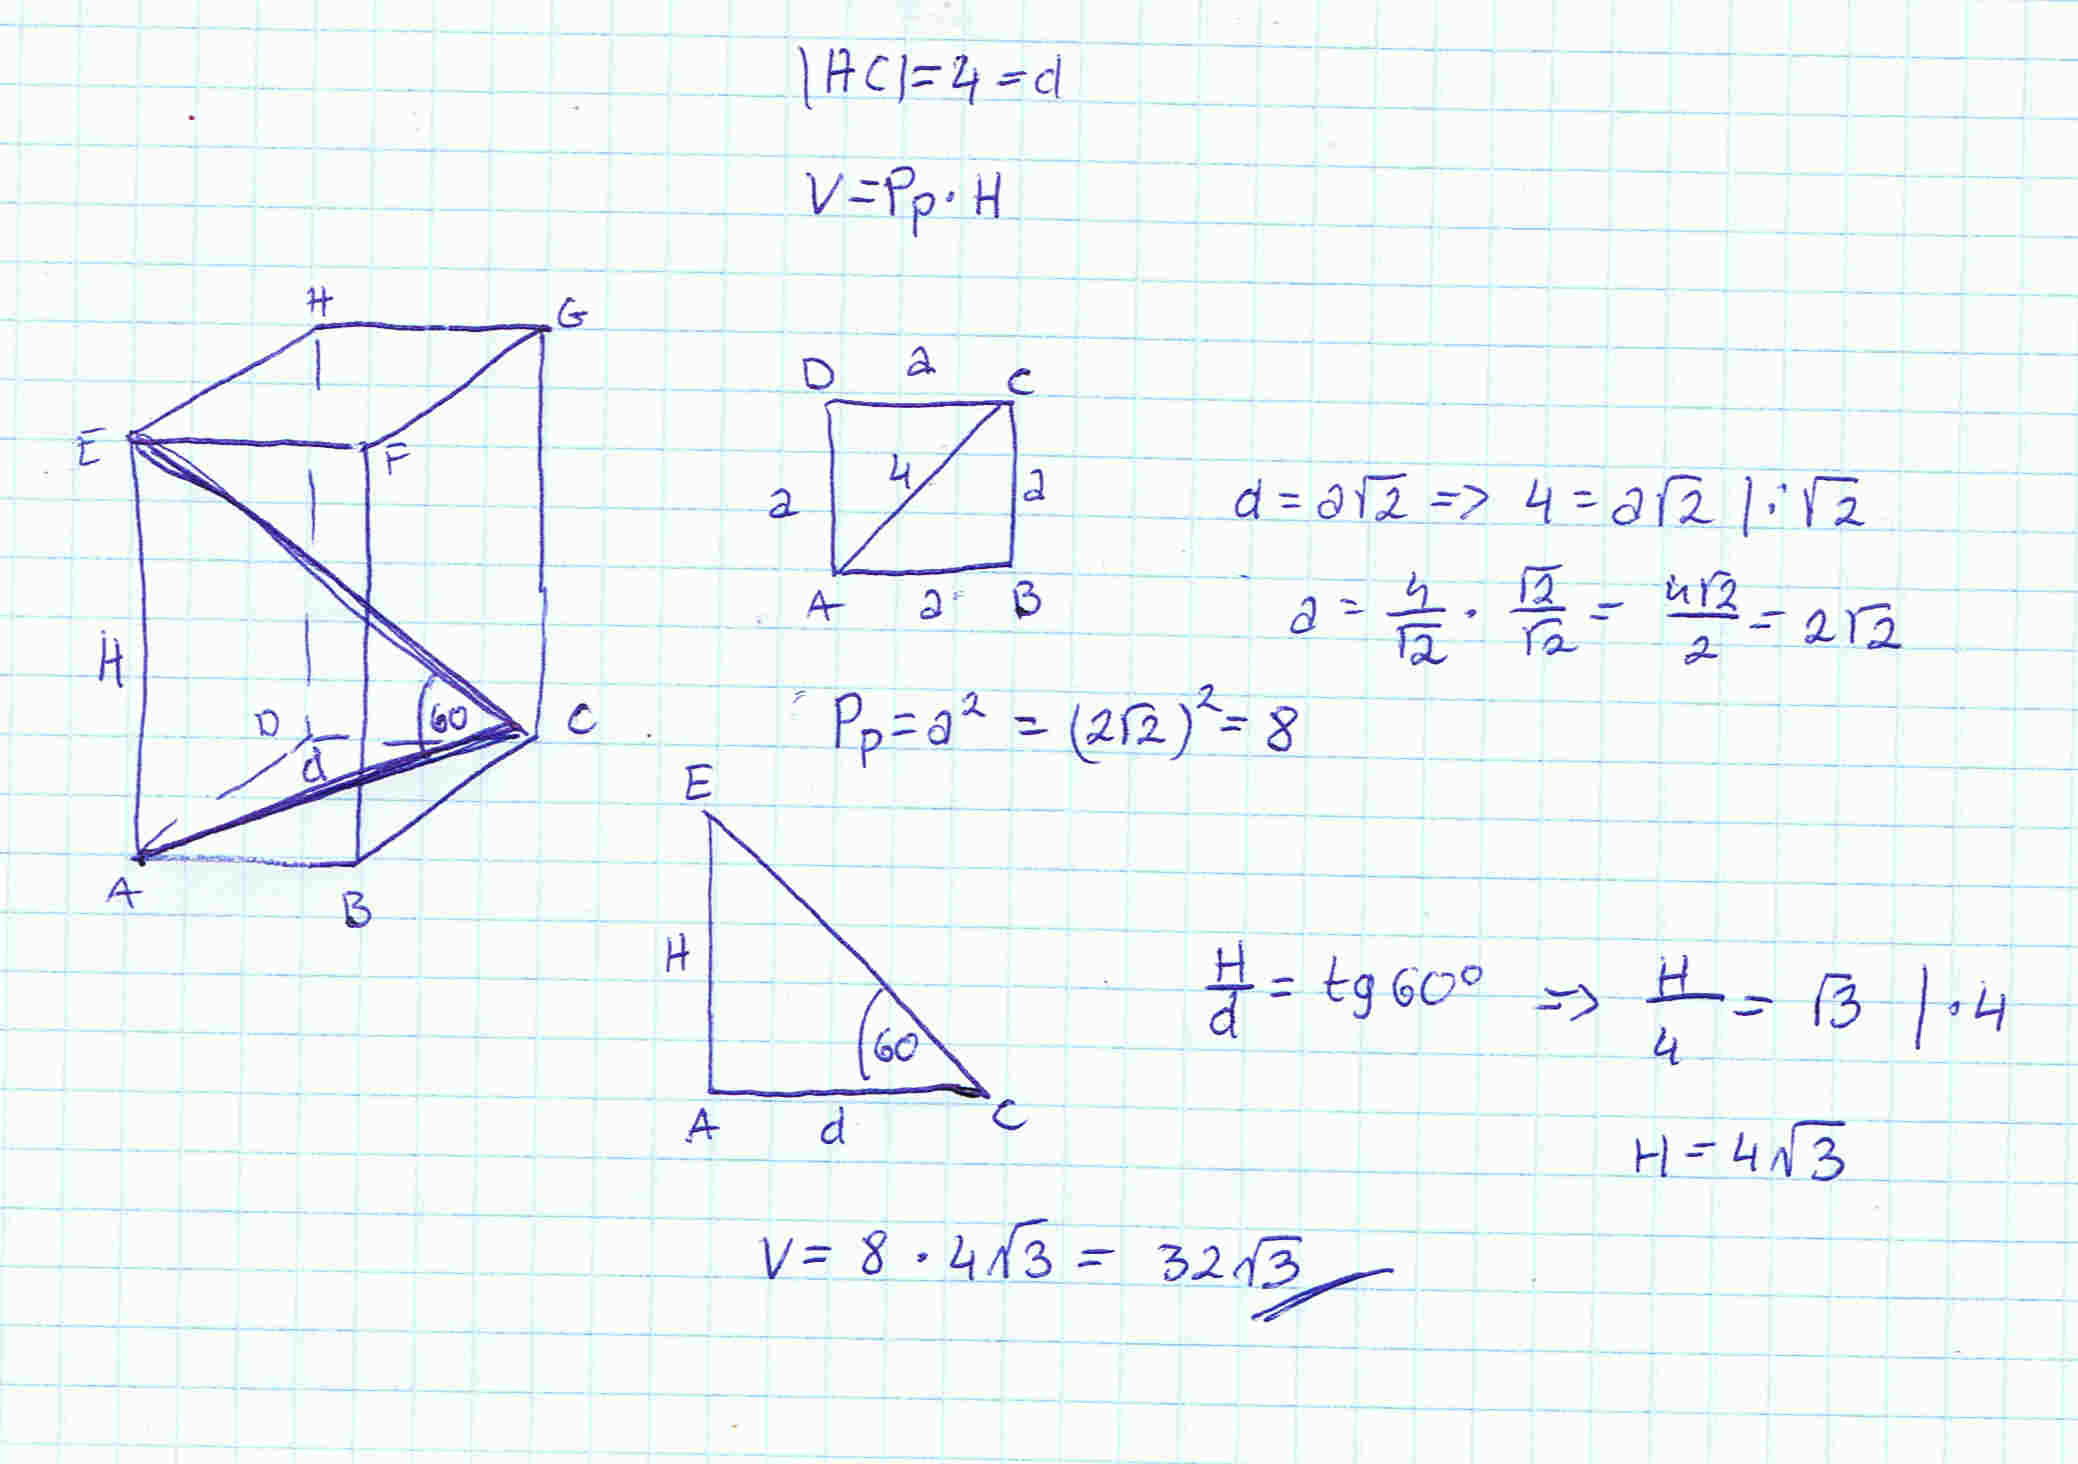 |AC|=4=d
V=Pp·H
H G
E F
H
D d 60 C
A B
D a C
a 4 a
A a B
d=a√2 => 4=a√2 |:√2
a=4/√2·√2/√2=4√2/2=2√2
Pp=a²=(2√2)²=8
E
H
60
A d C
H/d=tg60° => H/4=√3 |·4
H=4√3
V=8·4√3=32√3